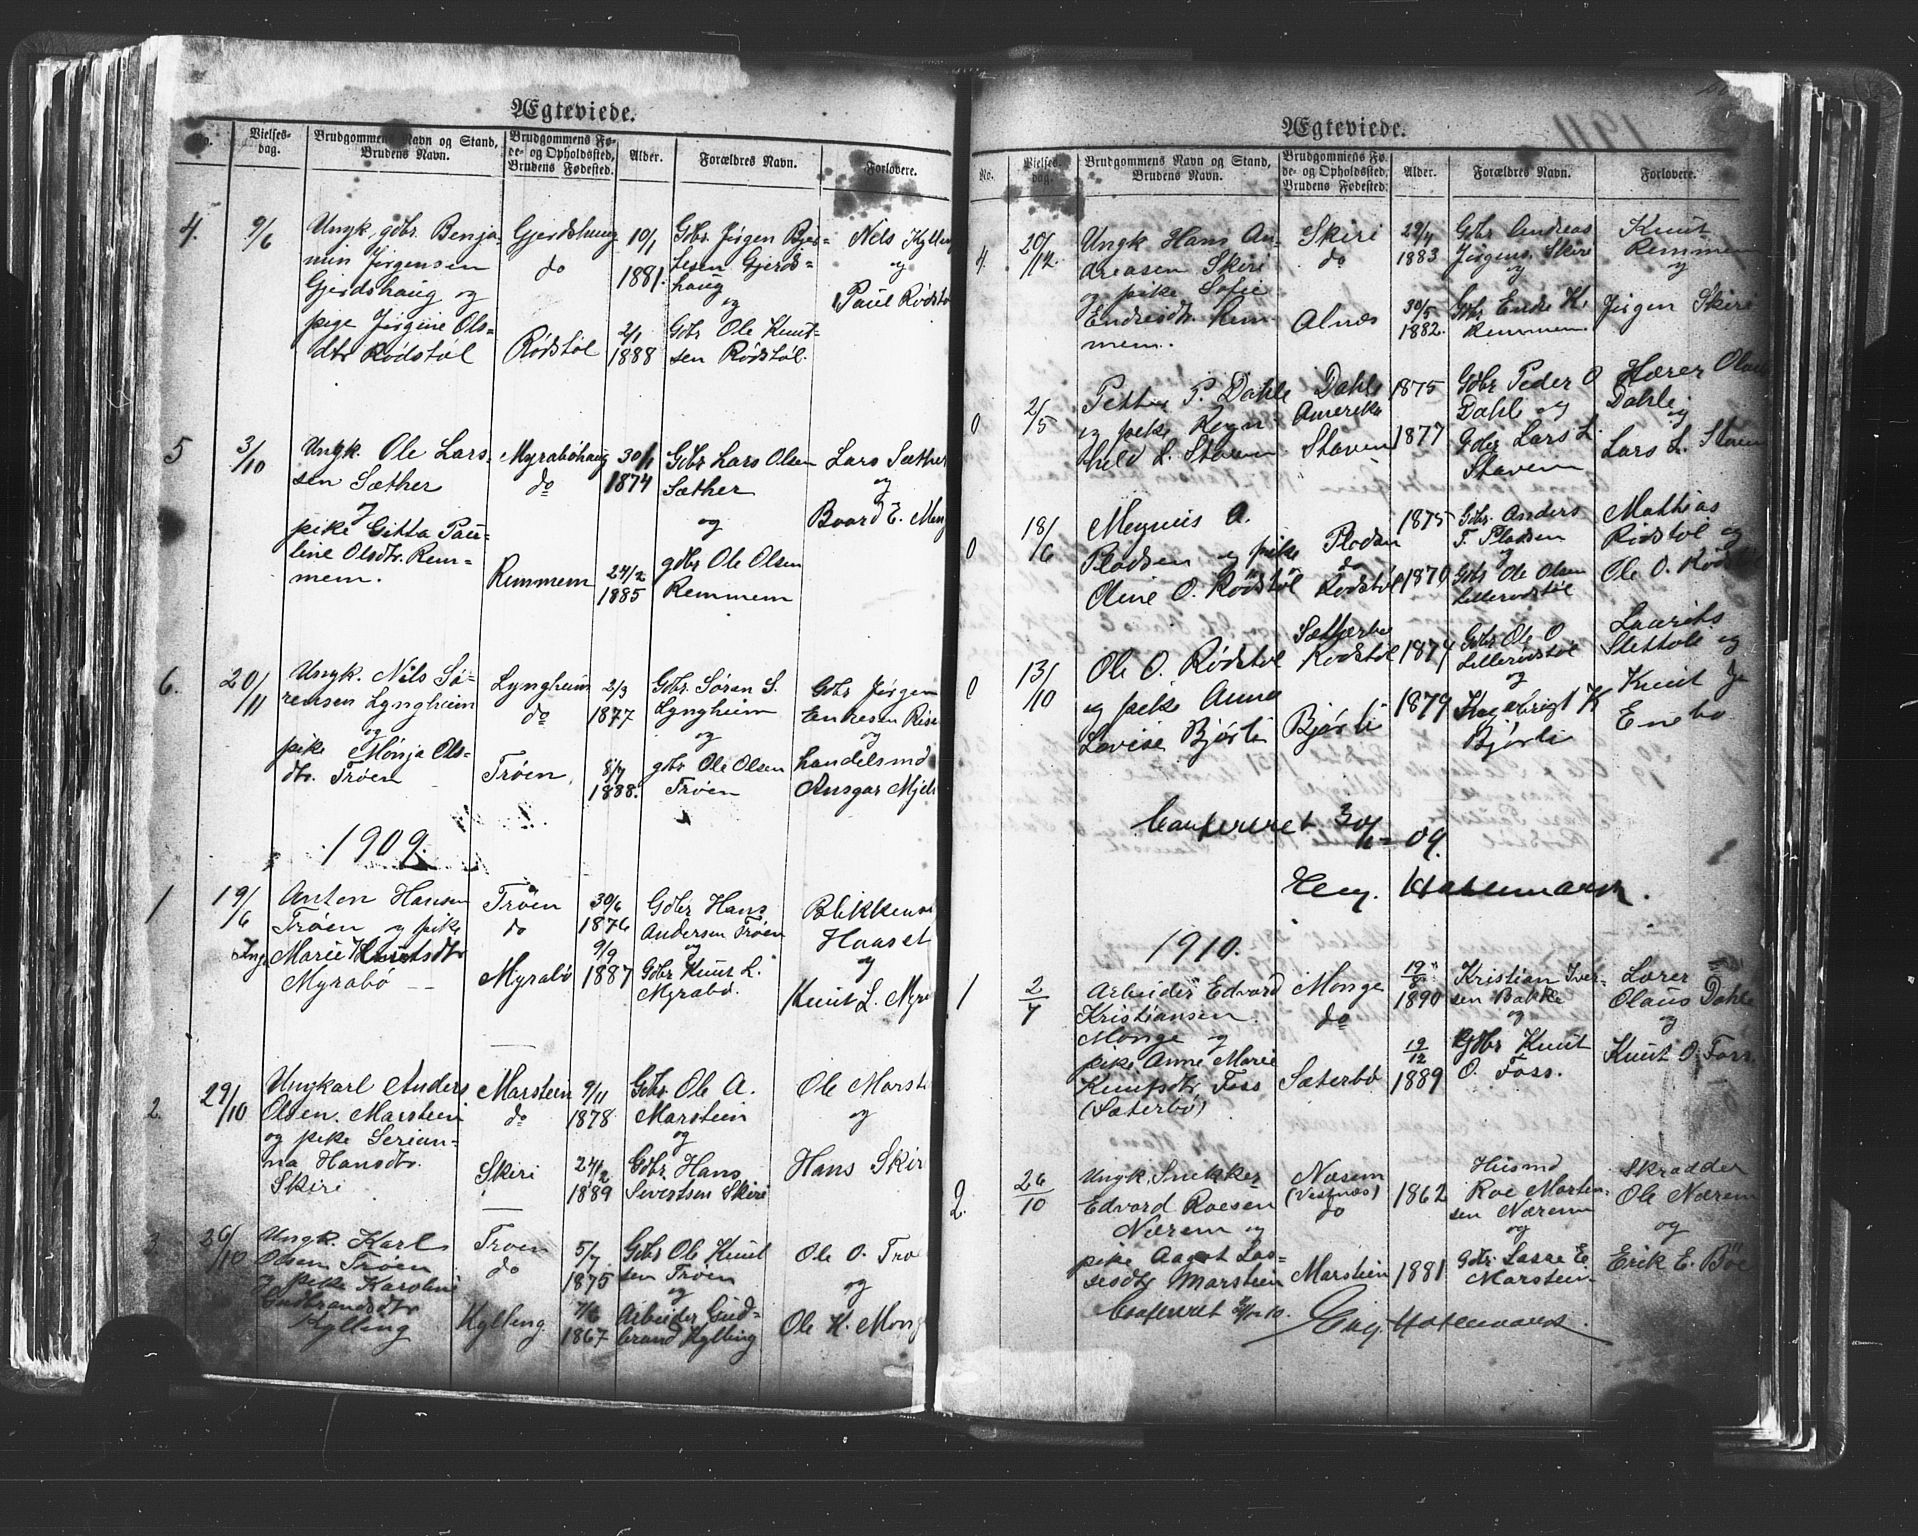 Ægteviede.
No.
Vielses-
dag.
Brudgommens Navn og Stand,
Brudens Navn.
Brudgommens Fø-
de- og Opholdssted,
Brudens Fødested.
Alder.
Forældres Navn.
Forlovere.
4. 9/6
Ungk. gdbr. Benja-
min Jørgensen
Gjerdshaug og
pige Jørgine Ols-
dtr Rødstøl
Gjerdshaug
do
Rødstøl
10/1
1881.
2/1
1888
Gdbr. Jørgen
Gjerds-
haug
og
Gdbr. Ole Knut-
sen Rødstøl.
Nils Kylling
og
Paul Rødstøl
5 3/10
Ungk. Ole Lars-
sen Sæther
og
pike Gitta Pau-
line Olsdtr. Rem-
mem.
Myrabøhaug
do
Remmem
30/1
1874
24/2
1885
Gdbr Lars Olsen
Sæther
og
gdbr Ole Olsen
Remmem
Lars Sæther
og
Baard E. Monge
6. 20/11
Ungk. Nils Sø-
rensen Lyngheim
og
pike Mønja Ols-
dtr. Trøen
Lyngheim
do
Trøen,
2/3
1877
8/7
1888.
Gdbr. Søren S.
Lyngheim
og
gbr Ole Olsen
Trøen
Gdbr Jørgen
Endresen
og
handelsmd
Ansgar
1909.
1 19/6
Anton Hansen
Trøen og pike
Inga Marie Knutsdtr
Myrabø
Trøen
do
Myrabø
30/6
1876
9/9
1887
Gdbr Hans
Andersen Trøen
og
Gdbr Knut L.
Myrabø.
Haaset
og
Knut L.
2. 29/10
Ungkarl Anders
Olsen Marstein
og pike Serian-
na Hansdtr.
Skiri
Marstein
do
Skiri
9/11
1878
24/2
1889
Gdbr. Ole A.
Marstein
og
Gdbr. Hans
Sivertsen Skiri
Ole Marst
og
Hans Skiri
3. 26/10
Ungk. Karl
Olsen Trøen
og pike Karoline
Gudbrandsdtr
Kylling
Trøen
do
Kylling
5/7
1875
7/6
1867
Gdbr Ole Knut
sen Trøen
og
Arbeider Gud-
brand Kylling
Ole O. Trø
og
Ole K. Monge
1911
Ægteviede.
No.
Vielses-
dag.
Brudgommens Navn og Stand,
Brudens Navn.
Brudgommens Fø-
de- og Opholdssted,
Brudens Fødested.
Alder.
Forældres Navn.
Forlovere.
4. 20/12
Ungk Hans An-
dreasen Skiri
og pike Sofie
Endresdtr. Rem-
mem.
Skiri
do
Alnæs
1883
30/5
1882.
Gdbr Andreas
Jørgens. Skiri
og
Gdbr. Endre K.
Remmem.
Knut
Remmem
og
Jørgen Skiri
0 2/5
Petter P. Dahle
og pike Ragn
hild L. Staven
Dahle
Amerika
Staven
1875
1877
Gdbr Peder O
Dahle og
Gdbr Lars L.
Stavem
Lærer Olaus
Dahle
og
Lars L. Stavem
0 18/6
Magnus A.
Flodsen og pike
Oline O. Rødstøl
Flodsen
do
Rødstøl
1875
1870
Gdbr. Anders
F. Flodsen
og
Gdbr Ole Olsen
Lillerødstøl
Mathias
Rødstøl og
Ole O. Rødstøl
0 13/10
Ole O. Rødstøl
og pike Anna
Lovise Bjørli
Sætherbø
Rødstøl
Bjørli
1874
1879
Gdbr Ole O
Lillerødstøl
og
Bjørli
Laurits
Slettole og
Knut
Enebo
Confereret 30/1-09.
Eng. Hatlemark.
1910.
1 2/7
Arbeider Edvard
Kristiansen
Monge og
pike Anne Marie
Knutsdtr Foss
(Sæterbø)
Monge
do
Sæterbø
19/8
1890
19/12
1889
Kristian Iver-
sen Bakke
og
Gdbr Knut
O. Foss.
Lærer
Olaus Dahle
og
Knut O. Foss.
2. 26/10
Ungk. Snekker
Edvard Roesen
Nærem og
pike Aagot Las-
sesdtr Marstein
Næsem
(Vestnæs)
do
Marstein
1862
1881
Husmd
Roe Morten-
sen Nærem
og
Gdbr. Lasse E.
Marstein
Skrædder
Ole Nærem
og
Erik E. Bøe
Confereret
Eng. Hatlemark.